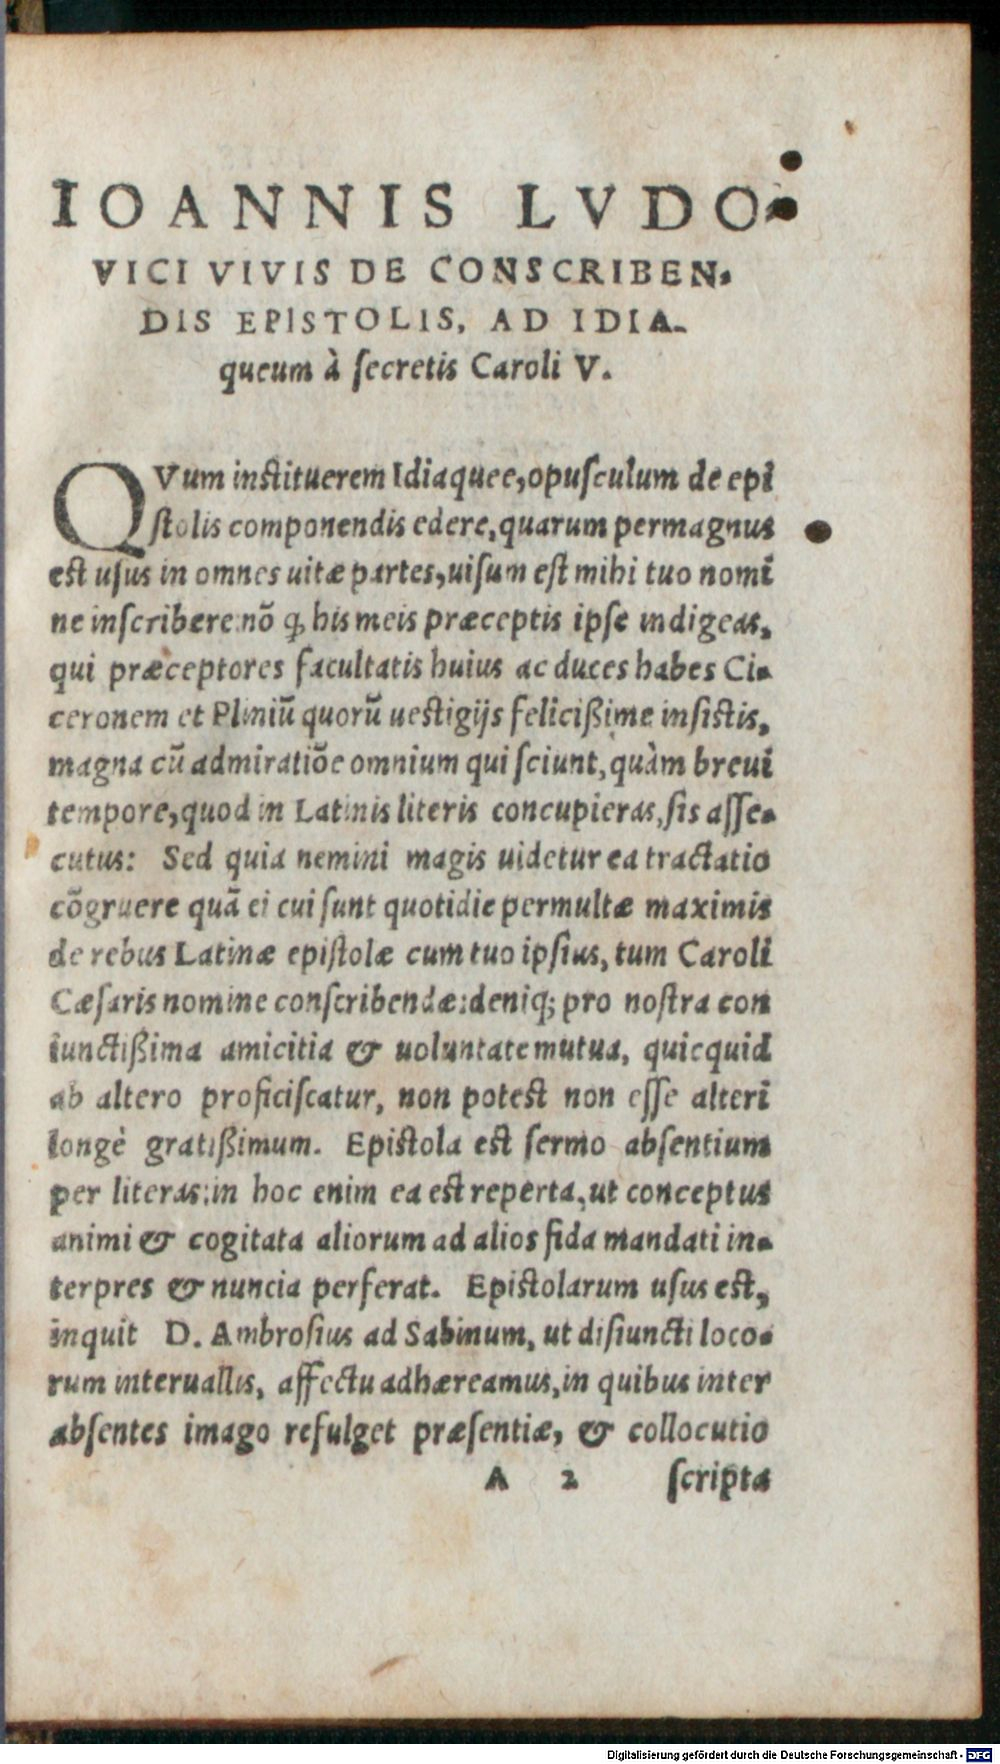 IOANNIS LVDO-
VICI VIVIS DE CONSCRIBEN-
DIS EPISTOLIS, AD IDIA-
queum à ſecretis Caroli V.
QVum inſtituerem Idiaquee, opuſculum de epi
ſtolis componendis edere, quarum permagnus
eſt uſus in omnes uitæ partes, uiſum eſt mihi tuo nomi
ne inſcribere: nō ꝙ his meis præceptis ipſe indigeas,
qui præceptores facultatis huius ac duces habes Ci-
ceronem et Pliniū quorū ueſtigijs feliciſsime inſiſtis,
magna cū admiratiōe omnium qui ſciunt, quàm breui
tempore, quod in Latinis literis concupieras, ſis aſſe-
cutus: Sed quia nemini magis uidetur ea tractatio
cōgruere quā ei cui ſunt quotidie permultæ maximis
de rebus Latinæ epiſtolæ cum tuo ipſius, tum Caroli
Cæſaris nomine conſcribendæ: deniq; pro noſtra con
iunctiſsima amicitia & uoluntate mutua, quicquid
ab altero proficiſcatur, non poteſt non eſſe alteri
longè gratiſsimum. Epiſtola eſt ſermo abſentium
per literas: in hoc enim ea eſt reperta, ut conceptus
animi & cogitata aliorum ad alios fida mandati in-
terpres & nuncia perferat. Epiſtolarum uſus eſt,
inquit D. Ambroſius ad Sabinum, ut diſiuncti loco-
rum interuallis, affectu adhæreamus, in quibus inter
abſentes imago refulget præſentiæ, & collocutio
A 2 ſcripta
Digitalisierung gefördert durch die Deutsche Forschungsgemeinschaft - DFG